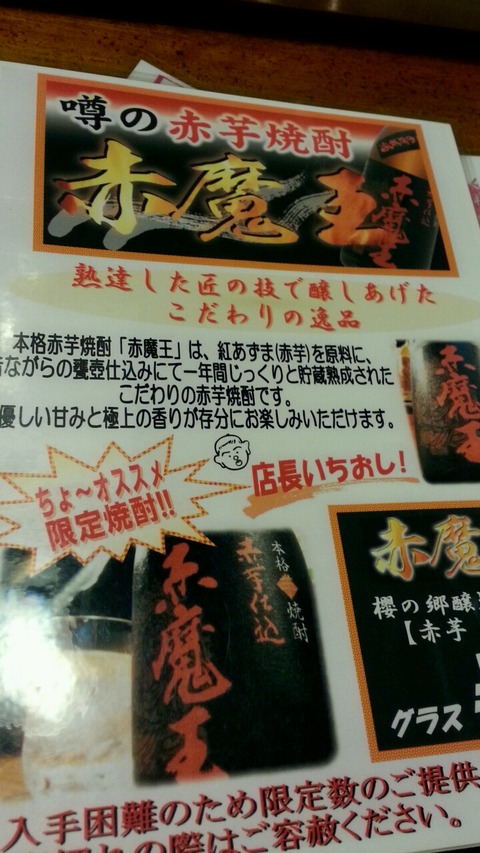 噂の赤芋焼酎
赤魔王
赤魔王
熟達した匠の技で醸しあげた
こだわりの逸品
本格赤芋焼酎「赤魔王」は、紅あずま(赤芋)を原料に、
ながらの甕壺仕込みにて一年間じっくりと貯蔵熟成された
こだわりの赤芋焼酎です。
優しい甘みと極上の香りが存分にお楽しみいただけます。
赤魔王
ちょ～オススメ
限定焼酎!!
店長いちおし!
本格焼酎
赤芋仕込
赤魔王
赤魔
櫻の郷醸
【赤芋
グラス
入手困難のため限定数のご提供
切れの際はご容赦ください。